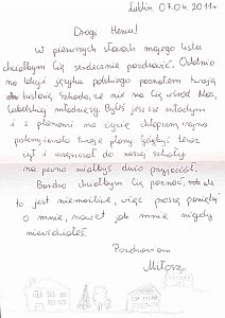 Lublin 07.04.2011r.
Drogi Heniu!
W pierwszych słowach mojego listu
chciałbym Cię serdecznie pozdrowić. Ostatnio
na lekcji języka polskiego poznałem twoją
historię. Szkoda, że nie ma Cię wśród Nas,
lubelskiej młodzieży. Byłeś jeszcze młodym
i z planami na życie chłopcem, wojna
twoje plany. Gdybyś teraz
żył i uczęszczał do naszej szkoły
na pewno miałbyś dużo przyjaciół.
Bardzo chciałbym Cię poznać, ale
to jest niemożliwe, więc proszę pamiętaj
o mnie, nawet jak mnie nigdy
nie widziałeś.
Pozdrawiam
Miłosz